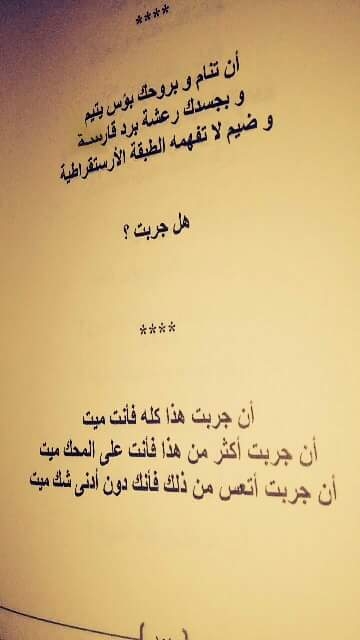 ****
أن تنام و بروحك بؤس يتيم
و بجسدك رعشة برد قارسة
و ضيم لا تفهمه الطبقة الأرستقراطية
هل جربت ؟
****
أن جربت هذا كله فأنت ميت
أن جربت أكثر من هذا فأنت على المحك ميت
أن جربت أتعس من ذلك فأنك دون أدنى شك ميت